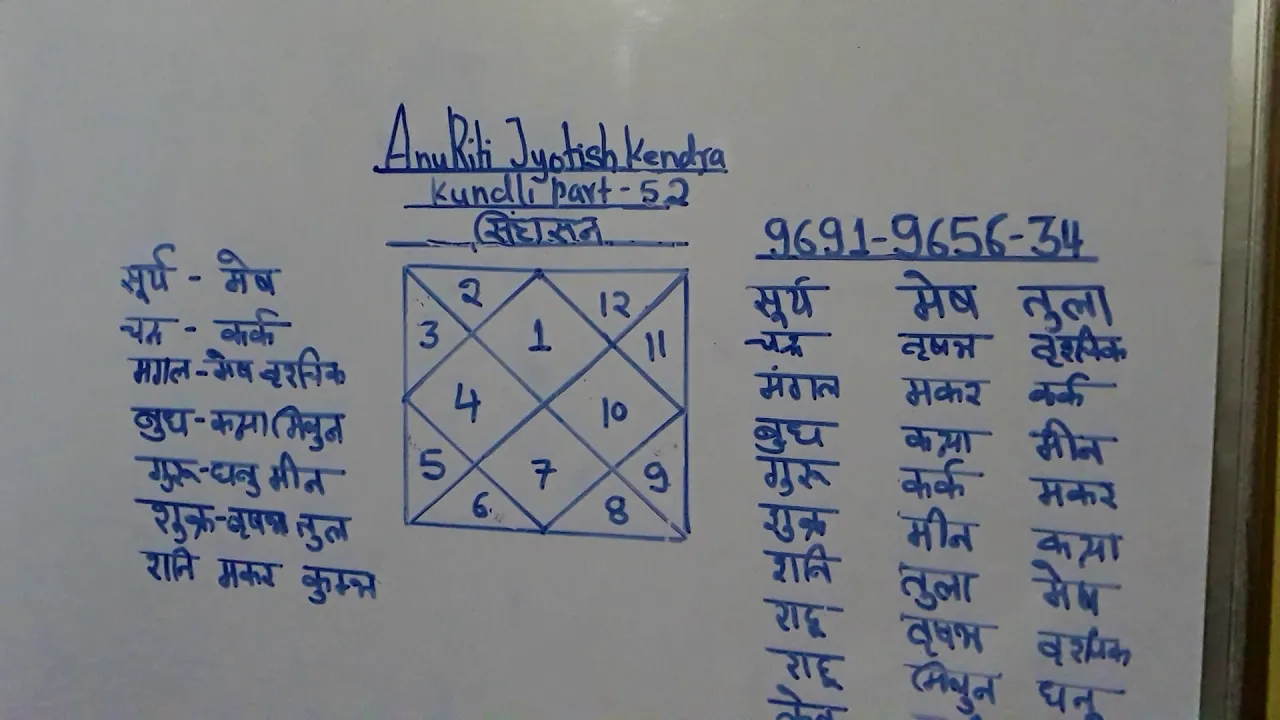 AnuRiti Jyotish Kendra
Kundli part - 52
सिंघासन
9691-9656-34
सूर्य - मेष
चन्द्र - कर्क
मंगल - मेष वृश्चिक
बुध - कन्या मिथुन
गुरू - धनु मीन
शुक्र - वृषभ तुल
शनि मकर कुम्भ
2
12
3
1
11
4
10
5
7
9
6
8
सूर्य मेष तुला
चन्द्र वृषभ वृश्चिक
मंगल मकर कर्क
बुध कन्या मीन
गुरू कर्क मकर
शुक्र मीन कन्या
शनि तुला मेष
राहू वृषभ वृश्चिक
राहू मिथुन धनु